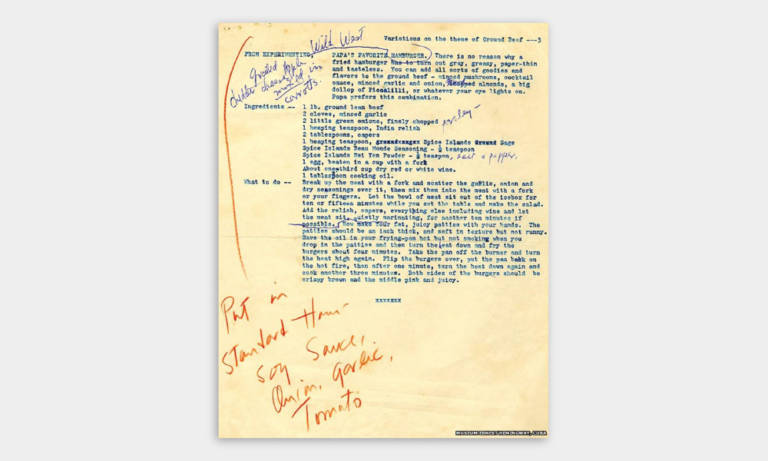 Variations on the theme of Ground Beef ---3
Wild West
FROM EXPERIMENTING, PAPA'S FAVORITE HAMBURGER. There is no reason why a
fried hamburger has to turn out gray, greasy, paper-thin
and tasteless. You can add all sorts of goodies and
flavors to the ground beef - minced mushrooms, cocktail
sauce, minced garlic and onion, almonds, a big
dollop of Piccalilli, or whatever your eye lights on.
Papa prefers this combination.
grated apple
cheddar cheese
carrots
Ingredients -- 1 lb. ground lean beef
2 cloves, minced garlic
2 little green onions, finely chopped parsley
1 heaping teaspoon, India relish
2 tablespoons, capers
1 heaping teaspoon, Spice Islands Sage
Spice Islands Beau Monde Seasoning - ½ teaspoon
Spice Islands Mei Yen Powder - ½ teaspoon, salt & pepper.
1 egg, beaten in a cup with a fork
About one third cup dry red or white wine.
1 tablespoon cooking oil.
What to do -- Break up the meat with a fork and scatter the garlic, onion and
dry seasonings over it, then mix them into the meat with a fork
or your fingers. Let the bowl of meat sit out of the icebox for
ten or fifteen minutes while you set the table and make the salad.
Add the relish, capers, everything else including wine and let
the meat sit, quietly marinating, for another ten minutes if
possible. Now make four fat, juicy patties with your hands. The
patties should be an inch thick, and soft in texture but not runny.
Have the oil in your frying-pan hot but not smoking when you
drop in the patties and then turn the heat down and fry the
burgers about four minutes. Take the pan off the burner and turn
the heat high again. Flip the burgers over, put the pan back on
the hot fire, then after one minute, turn the heat down again and
cook another three minutes. Both sides of the burgers should be
crispy brown and the middle pink and juicy.
xxxxxxx
Put in
Standard Ham-
Soy Sauce,
Onion, Garlic,
Tomato